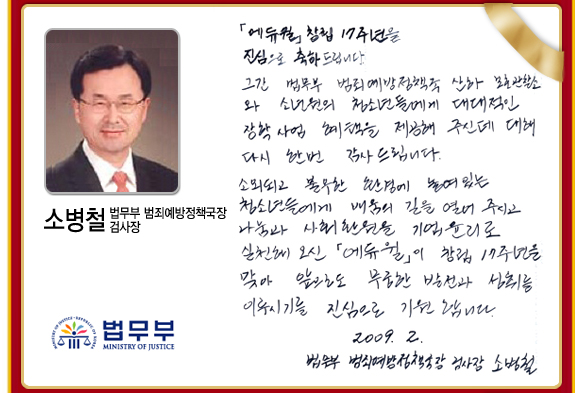 「에듀윌」 창립 17주년을
진심으로 축하드립니다
그간 법무부 범죄예방정책국 산하 보호관찰소
와 소년원의 청소년들에게 대대적인
장학사업 혜택을 제공해 주신데 대해
다시 한번 감사드립니다.
소외되고 불우한 환경에 놓여있는
청소년들에게 배움의 길을 열어 주시고
나눔과 사회환원을 기업윤리로
실천해 오신 「에듀윌」이 창립 17주년을
맞아 앞으로도 무궁한 발전과 성취를
이루시기를 진심으로 기원합니다.
2009. 2.
법무부 범죄예방정책국장 검사장 소병철
소병철 법무부 범죄예방정책국장
검사장
MINISTRY OF JUSTICE · REPUBLIC OF KOREA
법무부
MINISTRY OF JUSTICE